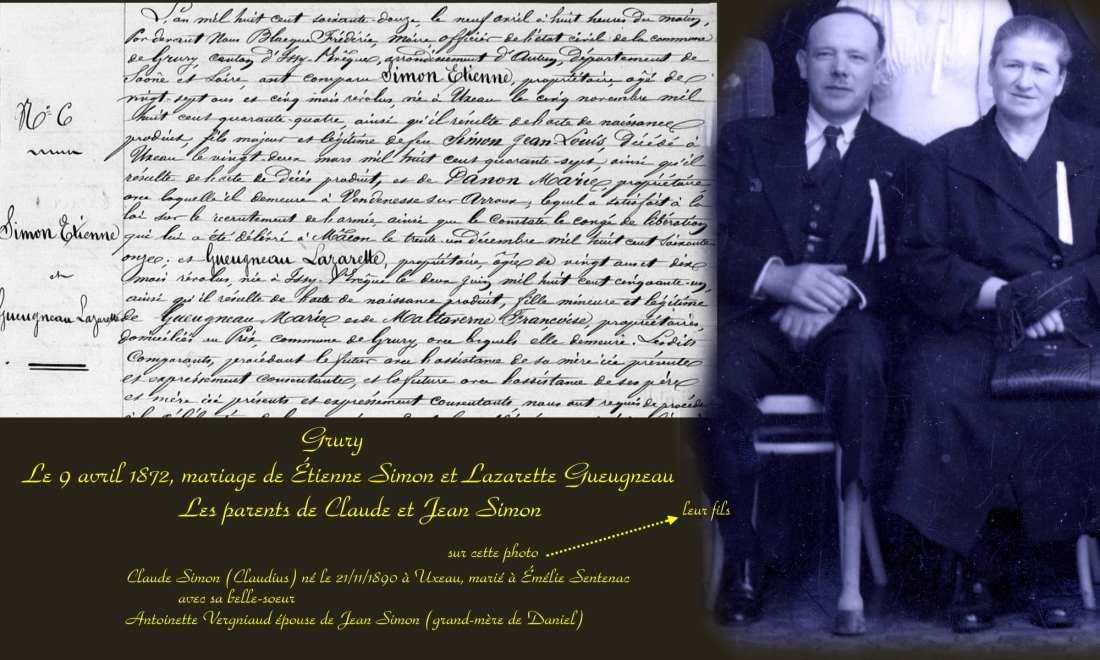 L'an mil huit cent soixante-douze, le neuf avril à huit heures du matin,
Par devant Nous Blacque Frédéric, maire officier de l'état civil de la commune
de Grury, canton d'Issy-l'Evêque, arrondissement d'Autun, Département de
Saône et Loire, ont comparu Simon Etienne, propriétaire, âgé de
vingt sept ans et cinq mois révolus, né à Uxeau le cinq novembre mil
huit cent quarante-quatre ainsi qu'il résulte de l'acte de naissance
produit, fils majeur et légitime de feu Simon Jean Louis décédé à
Uxeau le vingt deux mars mil huit cent quarante-sept ainsi qu'il
résulte de l'acte de décès produit, et de Danon Marie propriétaire
avec laquelle il demeure à Vendenesse sur Arroux, lequel a satisfait à la
loi sur le recrutement de l'armée ainsi que le constate le congé de libération
qui lui a été délivré à Mâcon le trente un décembre mil huit cent soixante
onze. et Gueugneau Lazarette, propriétaire, âgée de vingt ans et dix
mois révolus, née à Issy-l'Evêque le deux juin mil huit cent cinquante-un
ainsi qu'il résulte de l'acte de naissance produit, fille mineure et légitime
de Gueugneau Marie et de Mattaverne Francoise, propriétaires,
domiciliés au Prix, commune de Grury, avec lesquels elle demeure. Lesdits
Comparants, procédant le futur avec l'assistance de sa mère icie présente
et expressément consentante, et la future avec l'assistance de ses père
et mère ici présents et expressément consentants nous ont requis de procéder
N° 6
Simon Etienne
et
Gueugneau Lazarette
Grury
Le 9 avril 1872, mariage de Étienne Simon et Lazarette Gueugneau
Les parents de Claude et Jean Simon
leur fils
sur cette photo
Claude Simon (Claudius) né le 21/11/1890 à Uxeau, marié à Émélie Sentenac
avec sa belle-soeur
Antoinette Vergniaud épouse de Jean Simon (grand-mère de Daniel)